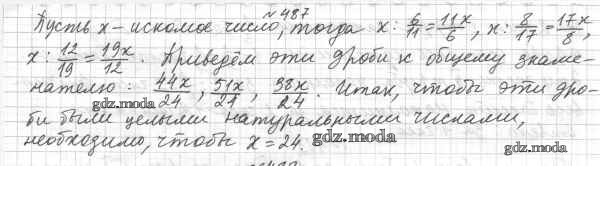 № 487
Пусть x - искомое число, тогда x : 6/11 = 11x/6, x : 8/17 = 17x/8,
x : 12/19 = 19x/12. Приведём эти дроби к общему знаме-
нателю: 44x/24, 51x/24, 38x/24. Итак, чтобы эти дро-
gdz.moda
би были целыми натуральными числами,
необходимо, чтобы x = 24.
gdz.moda
gdz.moda